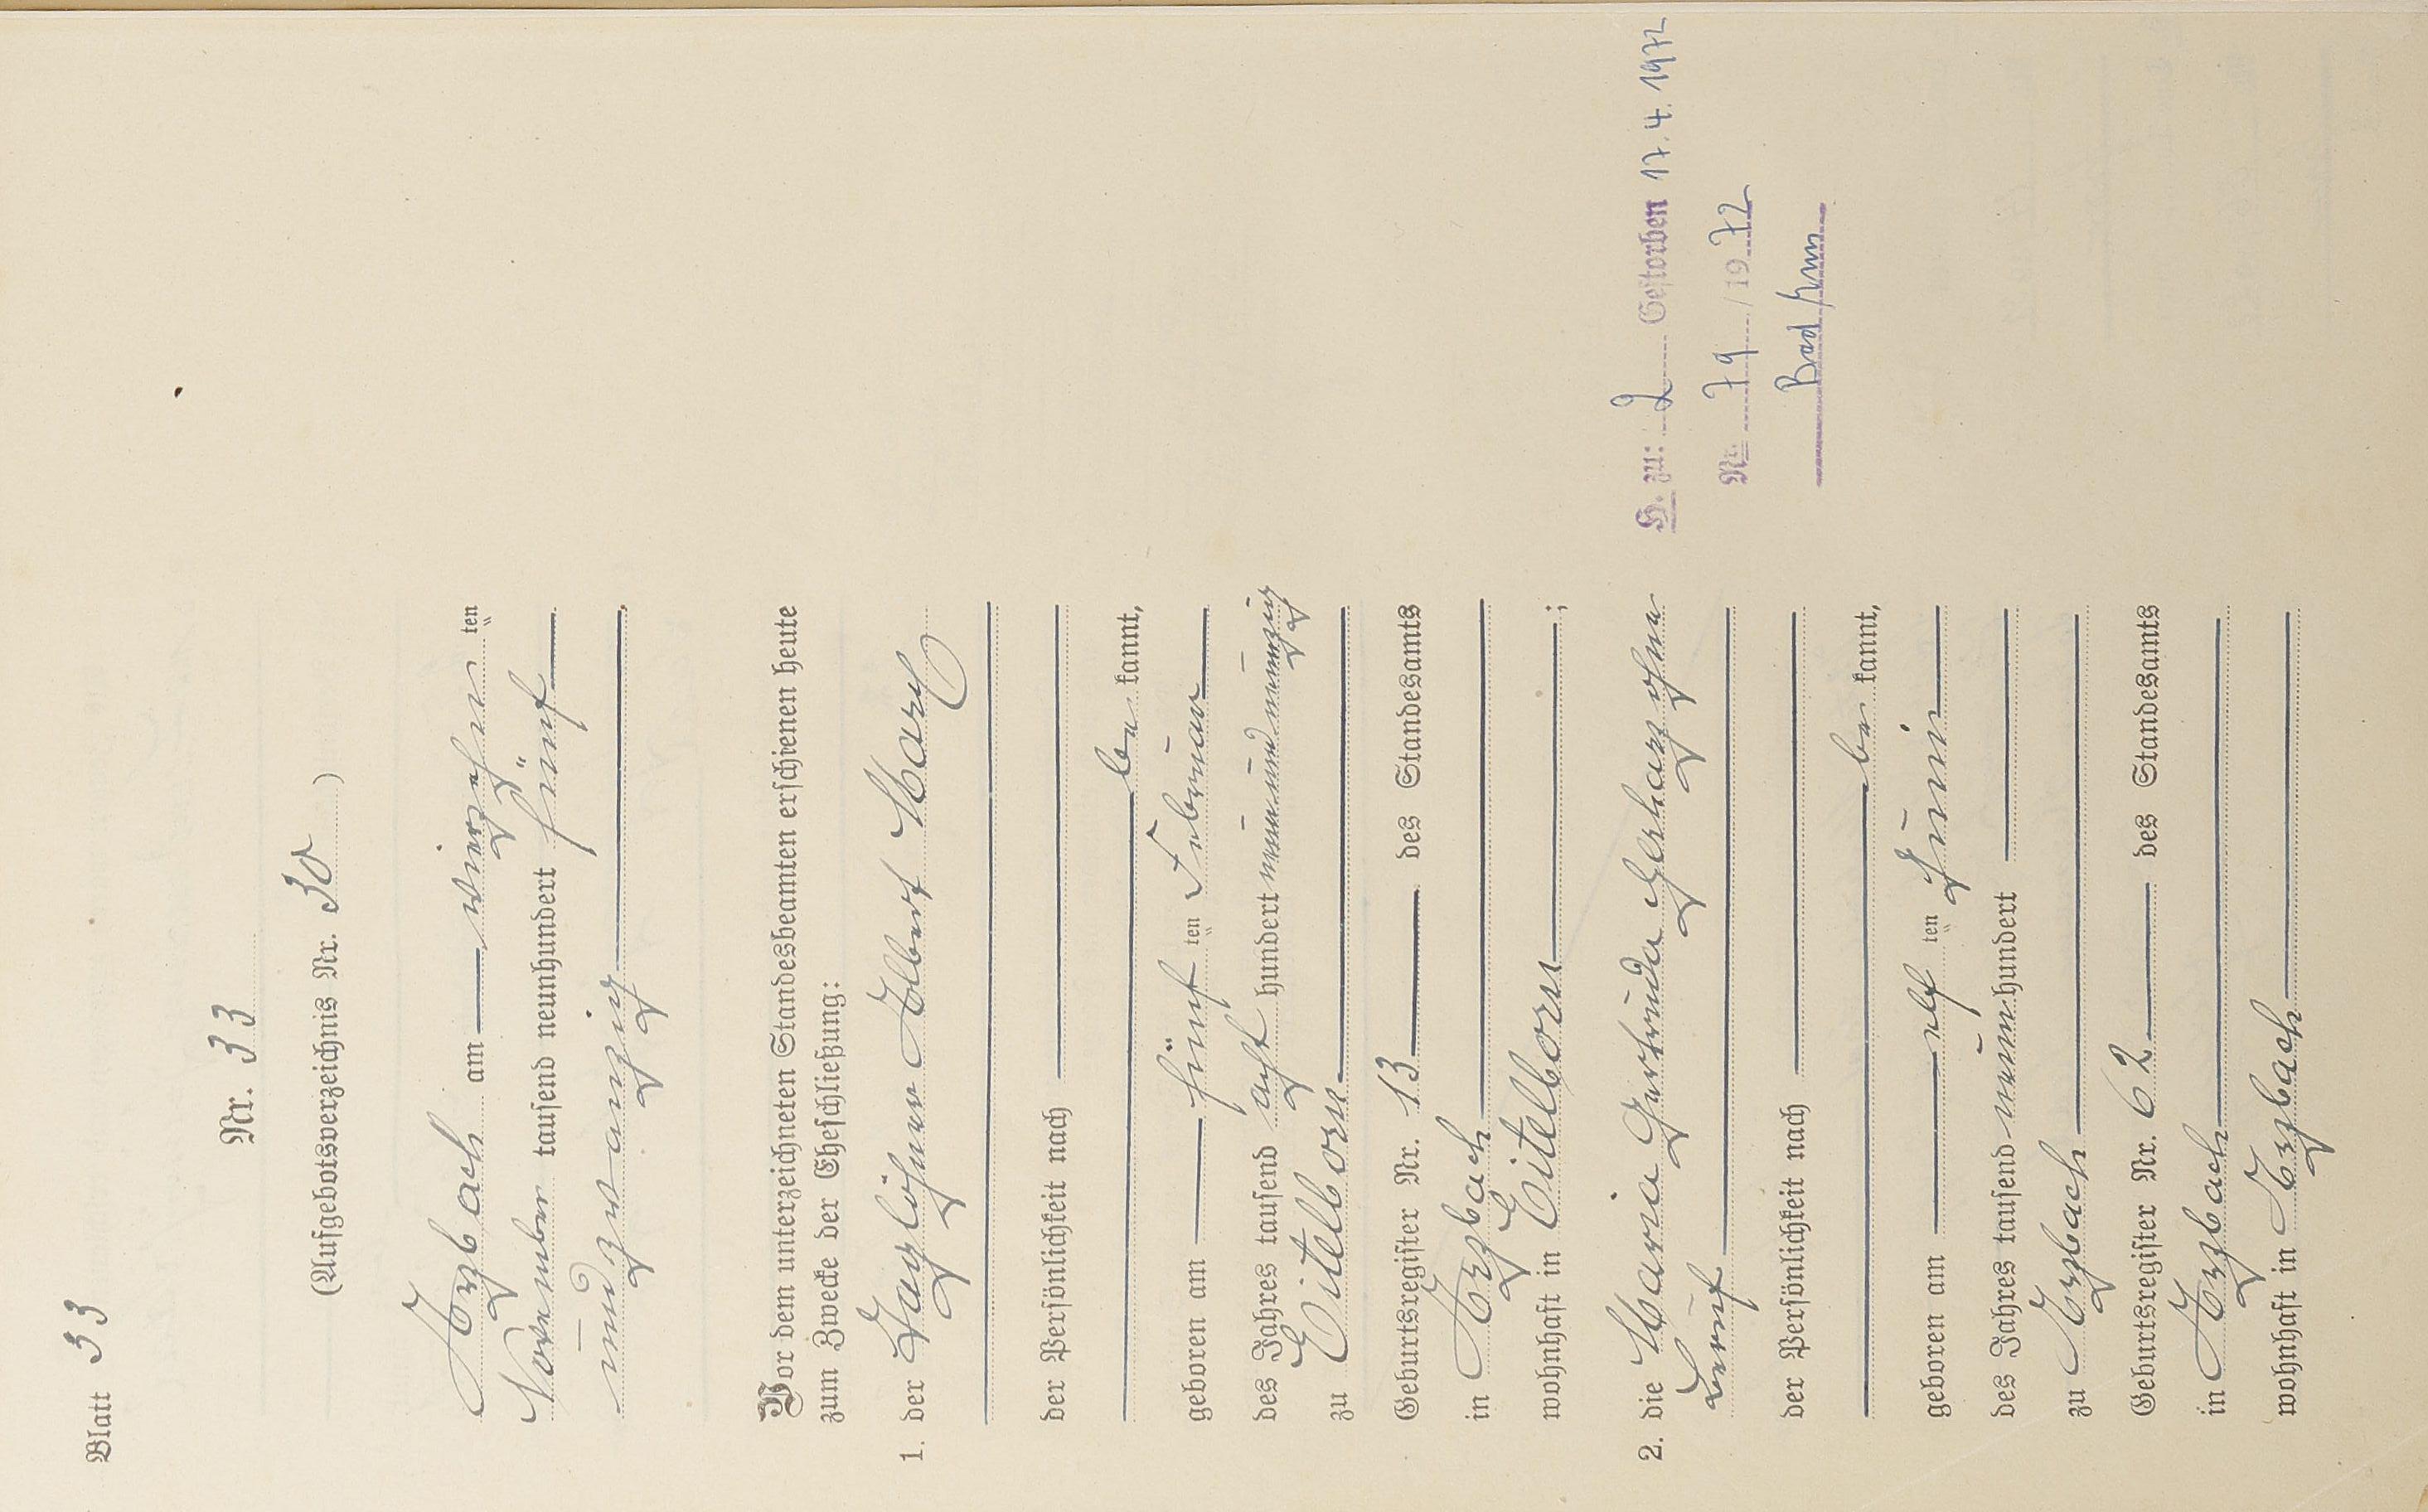 Blatt 33
Nr. 33
(Aufgebotsverzeichnis Nr. 30)
Arzbach am vierzehn ten
November tausend neunhundert fünf
und zwanzig.
Vor dem unterzeichneten Standesbeamten erschienen heute
zum Zwecke der Eheschließung:
1. der Taglöhner Albert Marx
der Persönlichkeit nach
be kannt,
geboren am fünf ten Februar
des Jahres tausend acht hundert neunundneunzig
zu Eitelborn
Geburtsregister Nr. 13 des Standesamts
in Arzbach
wohnhaft in Eitelborn ;
2. die Maria Gertruda Gerharz ohne
Beruf
der Persönlichkeit nach
be kannt,
geboren am elf ten Juni
des Jahres tausend neun hundert
zu Arzbach
Geburtsregister Nr. 62 des Standesamts
in Arzbach
wohnhaft in Arzbach
H. zu: 2 Gestorben 17.4.1972
Nr. 79 / 1972
Bad Ems